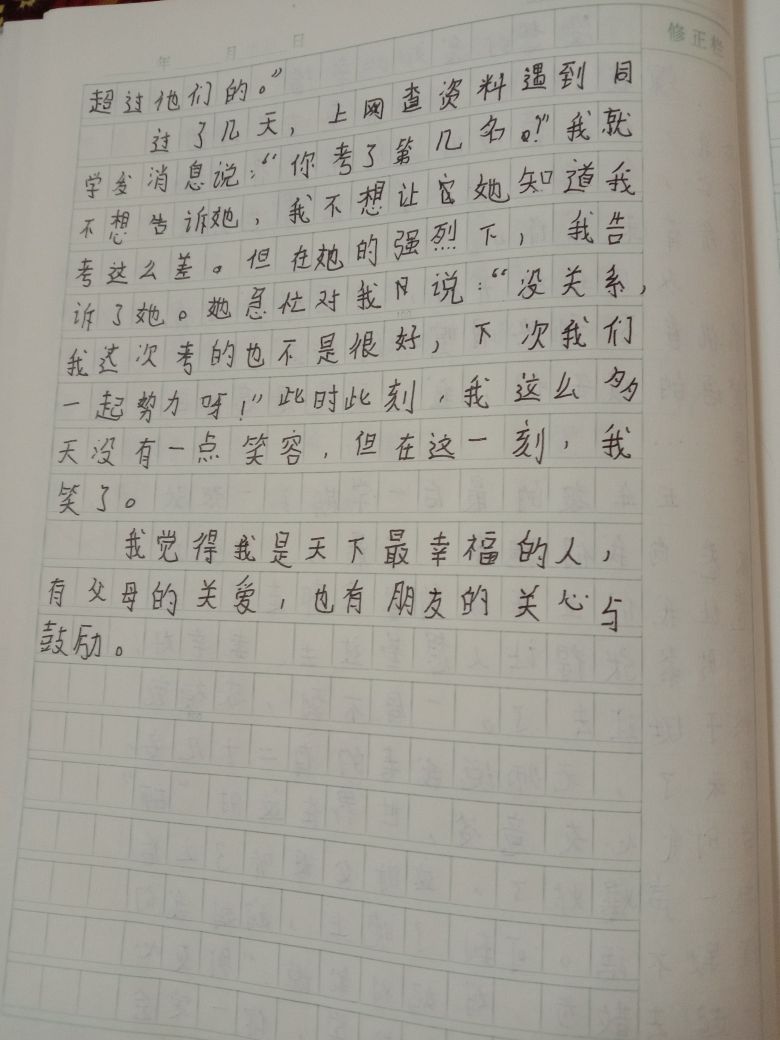 年 月 日
修正栏
超过他们的。”
过了几天，上网查资料遇到同
学发消息说：“你考了第几名。？”我就
不想告诉她，我不想让她知道我
考这么差。但在她的强烈下，我告
诉了她。她急忙对我说：“没关系，
我这次考的也不是很好，下次我们
一起努力呀！”此时此刻，我这么多
天没有一点笑容，但在这一刻，我
笑了。
我觉得我是天下最幸福的人，
有父母的关爱，也有朋友的关心与
鼓励。